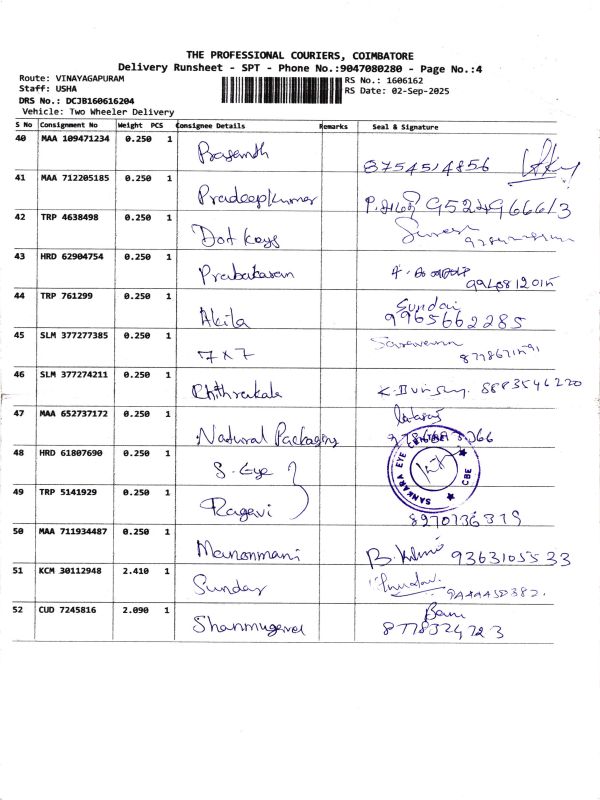 THE PROFESSIONAL COURIERS, COIMBATORE
Delivery Runsheet - SPT - Phone No.:9047080280 - Page No.:4
Route: VINAYAGAPURAM RS No.: 1606162
Staff: USHA RS Date: 02-Sep-2025
DRS No.: DCJB160616204
Vehicle: Two Wheeler Delivery
S No Consignment No Weight PCS Consignee Details Remarks Seal & Signature
40 MAA 109471234 0.250 1 Prasanth 8754514856
41 MAA 712205185 0.250 1 Pradeepkumar 9524966613
42 TRP 4638498 0.250 1 Dot Keys
43 HRD 62904754 0.250 1 Prabakaran
44 TRP 761299 0.250 1 Akila Sundai 9965662285
45 SLM 377277385 0.250 1 7x7
46 SLM 377274211 0.250 1 Chithrakala 8883546220
47 MAA 652737172 0.250 1 Natural Packaging
48 HRD 61807690 0.250 1 S. Eye SANKARA EYE CENTRE CBE
49 TRP 5141929 0.250 1 Ragavi 8970136319
50 MAA 711934487 0.250 1 Manonmani 9363105533
51 KCM 30112948 2.410 1 Sundar
52 CUD 7245816 2.090 1 Shanmugavel 8778324723